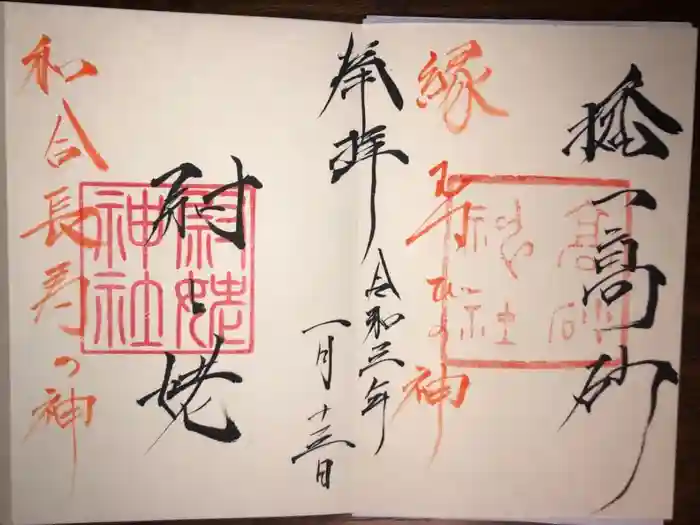 高砂
縁
の神
奉拝
令和三年
一月十三日
尉と姥
和合長寿の神
高砂
神社
尉姥
神社